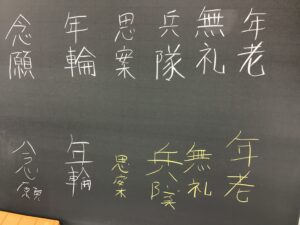 年老
無礼
兵隊
思案
年輪
念願
年老
無礼
兵隊
思案
年輪
念願